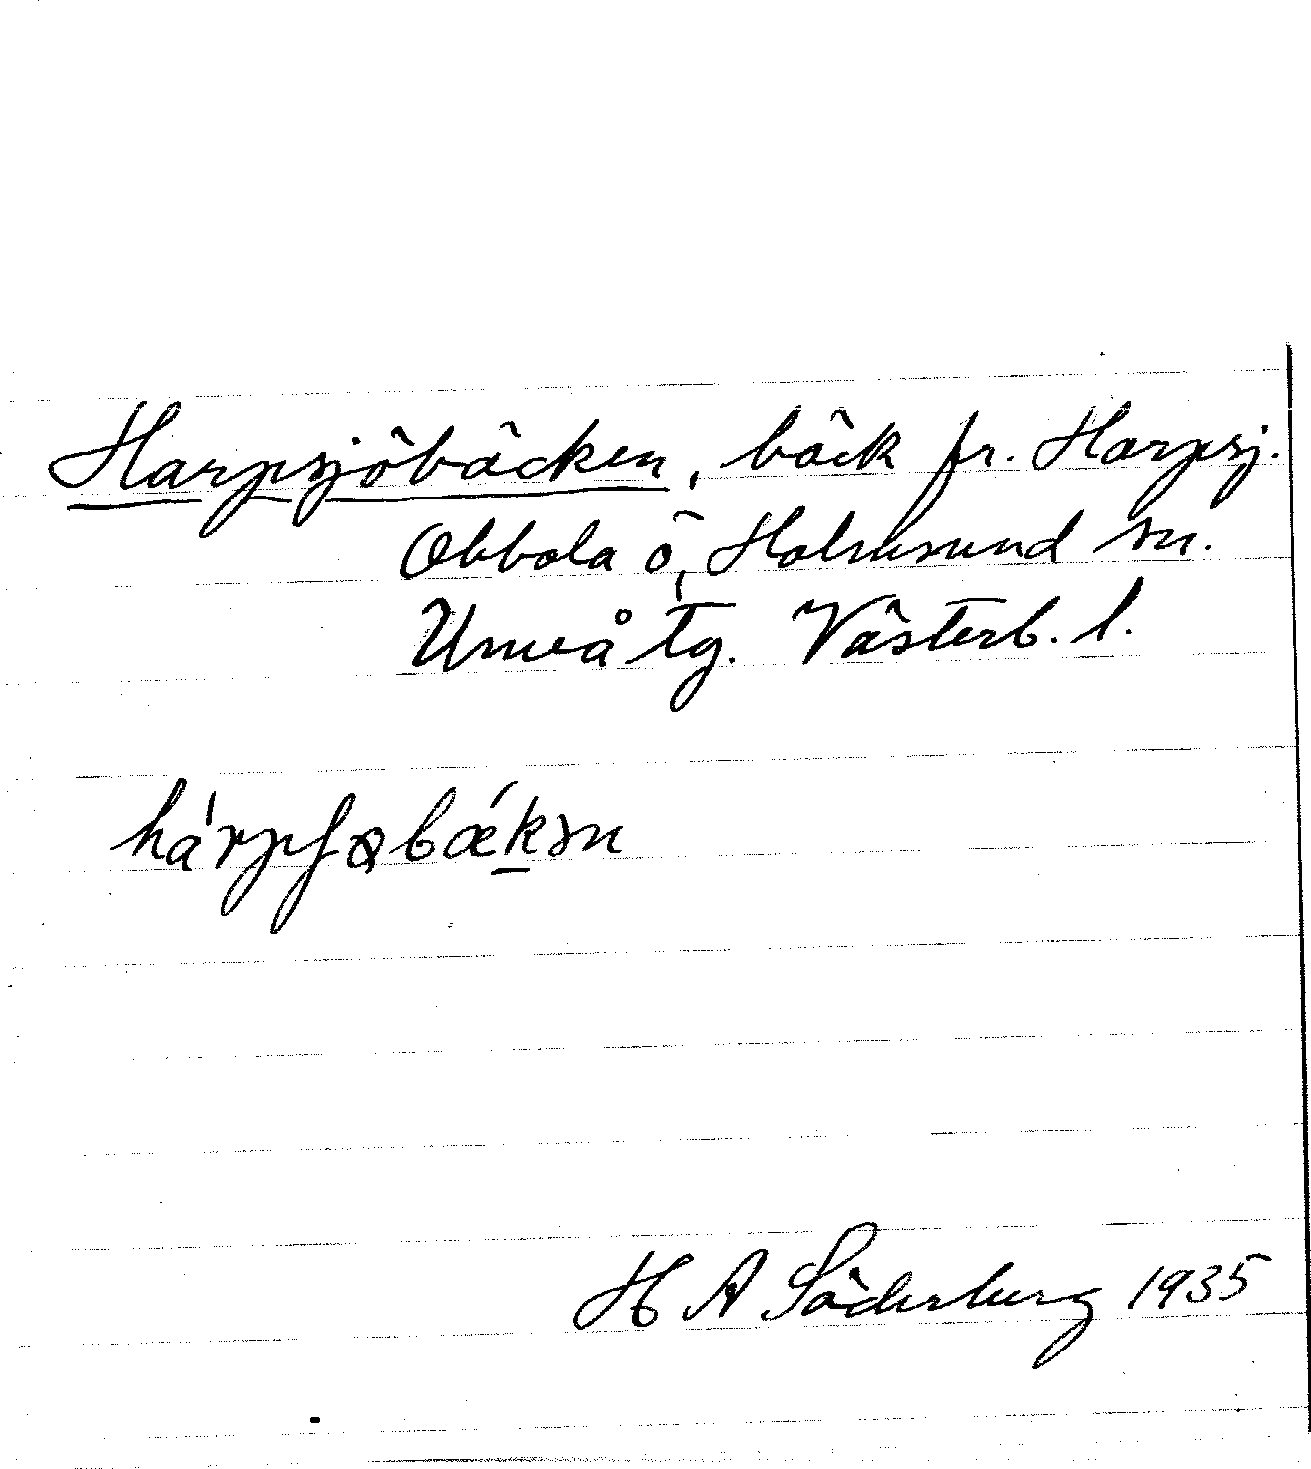 Harpsjöbäcken, bäck fr. Harpsj.
Obbola ö, Holmsund sn.
Umeå tg. Västerb. l.
hárpʃɷbǽk̠ən
H A Söderberg 1935